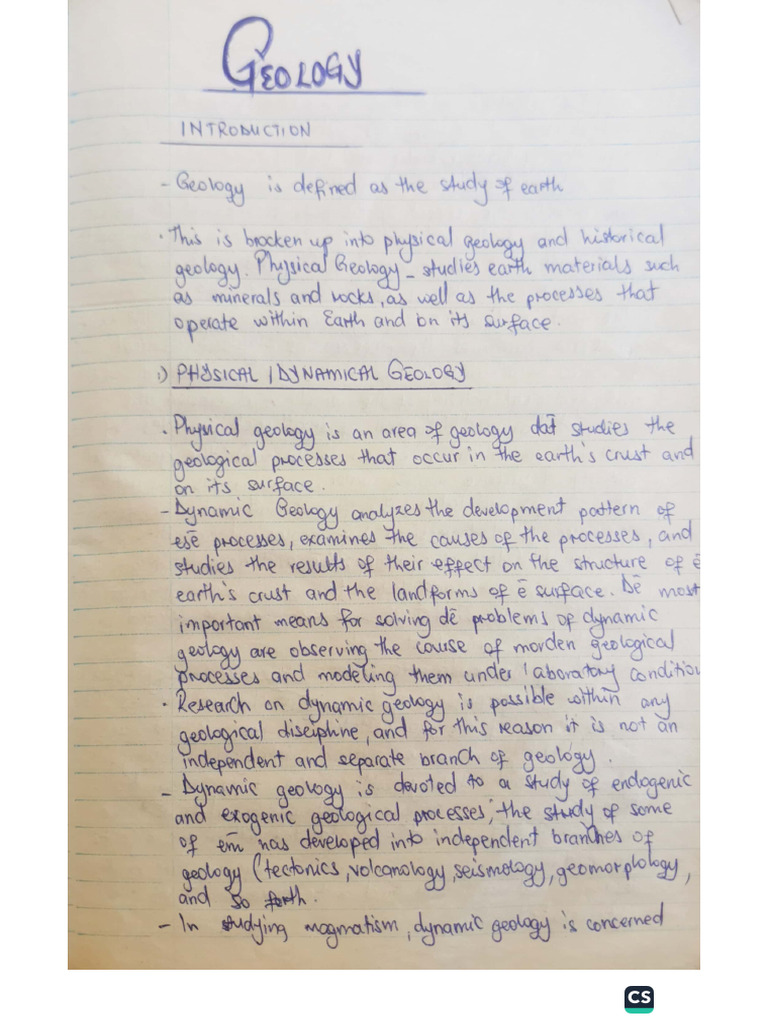 GEOLOGY
INTRODUCTION
- Geology is defined as the study of earth
• This is brocken up into physical geology and historical
geology. Physical Geology - studies earth materials such
as minerals and rocks, as well as the processes that
operate within Earth and on its surface.
i) PHYSICAL / DYNAMICAL GEOLOGY
• Physical geology is an area of geology dat̄ studies the
geological processes that occur in the earth's crust and
on its surface.
- Dynamic Geology analyzes the development pattern of
esē processes, examines the causes of the processes, and
studies the results of their effect on the structure of ē
earth's crust and the landforms of ē surface. Dē most
important means for solving dē problems of dynamic
geology are observing the cause of morden geological
processes and modeling them under laboratory condition
• Research on dynamic geology is possible within any
geological discipline, and for this reason it is not an
independent and separate branch of geology.
- Dynamic geology is devoted to a study of endogenic
and exogenic geological processes; the study of some
of em̄ has developed into independent branches of
geology (tectonics, volcanology, seismology, geomorphology,
and so forth.
- In studying magmatism, dynamic geology is concerned
CS